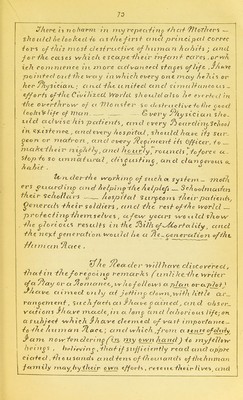 75
There is no harm in my repeating that Mothers
should be looked to as the first and principal correc
tors of this most destructive of human habits; and
for the cases which escape their infant cares, or wh
ich commence in more advanced stages of life, I have
pointed out the way in which every one may be his or
her Physician; and the united and simultaneous
efforts of the Civilized World should also be exerted in
the overthrow of a Monster so destructive to the good
looks & life of man. Every Physician sho
uld advise his patients, and every Boarding School
in existence, and every hospital, should have its sur
geon or matron, and every Regiment its Officer, to
make their nightly, and hourly, rounds, to force a
stop to so unnatural, disgusting, and dangerous a
habit.
Under the working of such a system — moth
ers guarding and helping the helpless — Schoolmasters
their scholars — hospital surgeons their patients,
Generals their soldiers, and the rest of the world —
protecting themselves, a few years would show
the glorious results in the Bills of Mortality, and
the next generation would be a Re-generation of the
Human Race.
The Reader will have discovered,
that in the foregoing remarks (unlike the writer
of a Play or a Romance, who follows a plan or a plot)
I have aimed only at jotting down, with little ar
rangement, such facts as I have gained, and obser
vations I have made, in a long and laborious life; on
a subject which I have deemed of vast importance
to the human Race; and which, from a sense of duty
I am now tendering (in my own hand) to my fellow
beings; believing, that if sufficiently read and appre
ciated, thousands and tens of thousands of the human
family may, by their own efforts, rescue their lives, and